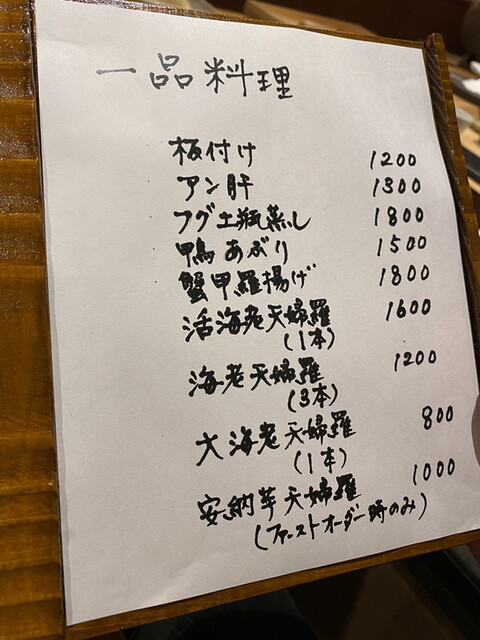 一品料理
板付け 1200
アン肝 1300
フグ土瓶蒸し 1800
鴨あぶり 1500
蟹甲羅揚げ 1800
活海老天婦羅 1600
(1本)
海老天婦羅 1200
(3本)
大海老天婦羅 800
(1本)
安納芋天婦羅 1000
(ファーストオーダー時のみ)